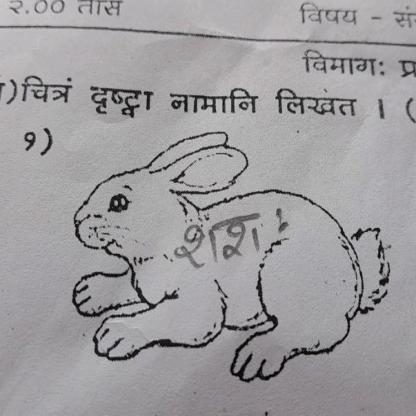 २.०० तास
विषय - सं
विभागः प्र
)चित्रं दृष्ट्वा नामानि लिखत । (
१)
शशः